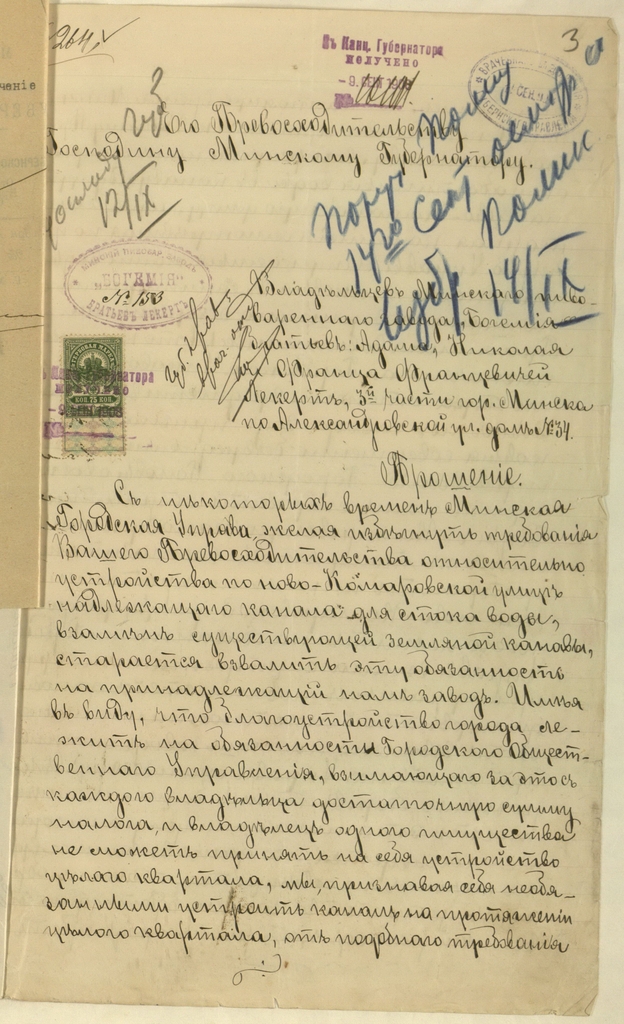 264.
3
Въ Канц. Губернатора
ПОЛУЧЕНО
Его Превосходительству
Господину Минскому Губернатору.
12/IX
14го Сент
14/IX
"БОГЕМІЯ"
№ 153
БРАТЬЕВЪ ЛЕКЕРТЪ
КОП. 75 КОП.
Владѣльцевъ Минскаго пиво-
вареннаго завода „Богемія"
братьевъ: Адама, Николая
и Франца Францевичей
Лекертъ, 3й части гор. Минска
по Александровской ул. домъ № 34.
Прошеніе.
Съ нѣкоторыхъ временъ Минская
Городская Управа, желая избѣгнуть требованія
Вашего Превосходительства относительно
устройства по ново-Комаровской улицѣ
надлежащаго канала для стока воды,
взамѣнъ существующей земляной канавы,
старается взвалить эту обязанность
на принадлежащій намъ заводъ. Имѣя
въ виду, что благоустройство города ле-
житъ на обязанности Городского Общест-
веннаго Управленія, взимающаго за это съ
каждаго владѣльца достаточную сумму
налога, и владѣлецъ одного имущества
не можетъ принять на себя устройство
цѣлаго квартала, мы, признавая себя необя-
занными устроить каналъ на протяженіи
цѣлаго квартала, отъ подобнаго требованія